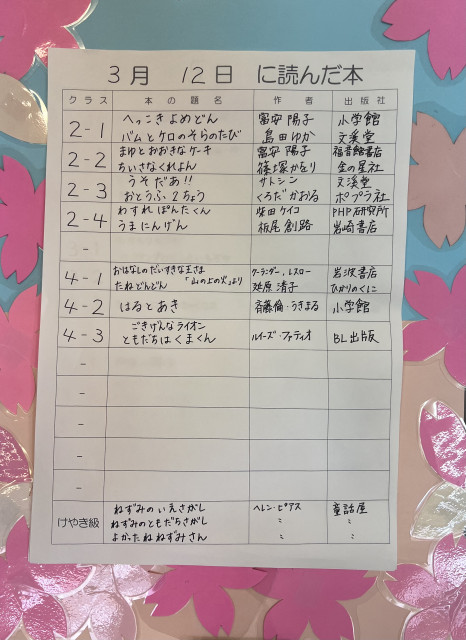 3月 12日 に読んだ本
クラス 本の題名 作者 出版社
2-1 へっこきよめどん 富安陽子 小学館
バムとケロのそらのたび 島田ゆか 文溪堂
2-2 まゆとおおきなケーキ 富安陽子 福音館書店
ちいさなくれよん 篠塚かをり 金の星社
2-3 うそだあ!! サトシン 文溪堂
おとうふ2ちょう くろだかおる ポプラ社
2-4 わすれぽんたくん 柴田ケイコ PHP研究所
うまにんげん 板尾創路 岩崎書店
3-1
4-1 おはなしのだいすきな王さま 「山の上の火」より クーランダー,レスロー 岩波書店
たねどんどん 清子 ひかりのくに
4-2 はるとあき 斉藤倫・うきまる 小学館
4-3 ごきげんなライオン ともだちはくまくん ルイーズ・ファティオ BL出版
-
-
-
-
-
けやき級 ねずみのいえさがし ヘレン・ピアス 童話屋
ねずみのともだちさがし 〃 〃
よかったねねずみさん 〃 〃